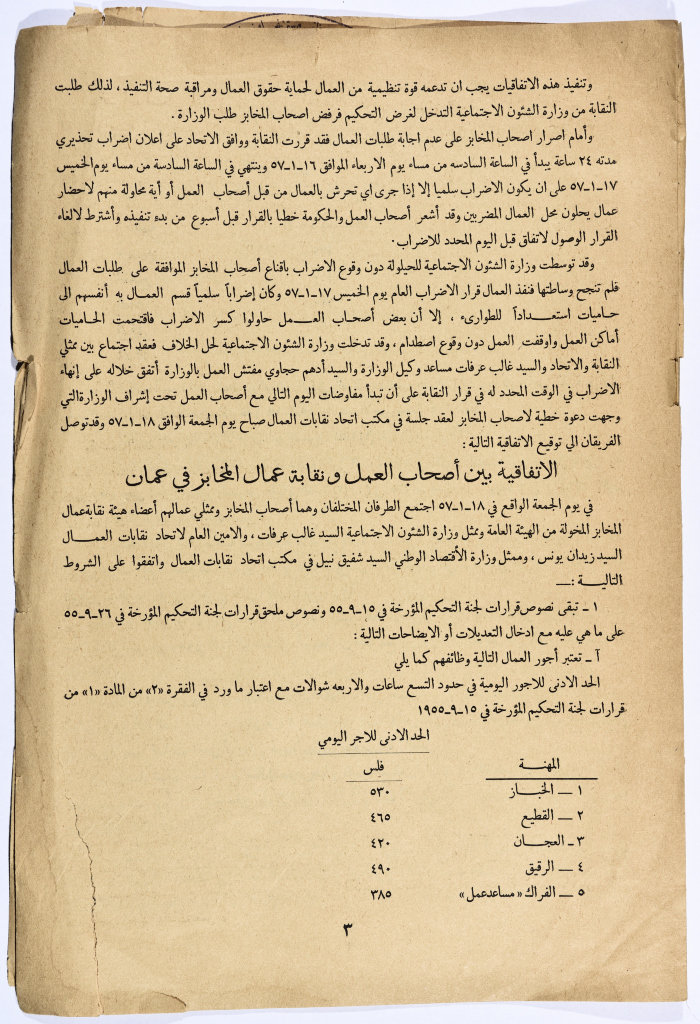 وتنفيذ هذه الاتفاقيات يجب ان تدعمه قوة تنظيمية من العمال لحماية حقوق العمال ومراقبة صحة التنفيذ ، لذلك طلبت
النقابة من وزارة الشئون الاجتماعية التدخل لغرض التحكيم فرفض اصحاب المخابز طلب الوزارة .
وأمام اصرار اصحاب المخابز على عدم اجابة طلبات العمال فقد قررت النقابة ووافق الاتحاد على اعلان اضراب تحذيري
مدته ٢٤ ساعة يبدأ في الساعة السادسه من مساء يوم الاربعاء الموافق ١٦-١-٥٧ وينتهي في الساعة السادسة من مساء يوم الخميس
١٧-١-٥٧ على ان يكون الاضراب سلميا إلا إذا جرى اي تحرش بالعمال من قبل أصحاب العمل أو أية محاولة منهم لاحضار
عمال يحلون محل العمال المضربين وقد أشعر أصحاب العمل والحكومة خطيا بالقرار قبل أسبوع من بدء تنفيذه وأشترط لالغاء
القرار الوصول لاتفاق قبل اليوم المحدد للاضراب .
وقد توسطت وزارة الشئون الاجتماعية للحيلولة دون وقوع الاضراب باقناع أصحاب المخابز الموافقة على طلبات العمال
فلم تنجح وساطتها فنفذ العمال قرار الاضراب العام يوم الخميس ١٧-١-٥٧ وكان إضراباً سلمياً قسم العمال به أنفسهم الى
حاميات استعداداً للطوارىء ، إلا أن بعض أصحاب العمل حاولوا كسر الاضراب فاقتحمت الحاميات
أماكن العمل واوقفت العمل دون وقوع اصطدام ، وقد تدخلت وزارة الشئون الاجتماعية لحل الخلاف فعقد اجتماع بين ممثلي
النقابة والاتحاد والسيد غالب عرفات مساعد وكيل الوزارة والسيد أدهم حجاوي مفتش العمل بالوزارة أتفق خلاله على إنهاء
الاضراب في الوقت المحدد له في قرار النقابة على أن تبدأ مفاوضات اليوم التالي مع أصحاب العمل تحت إشراف الوزارة التي
وجهت دعوة خطية لاصحاب المخابز لعقد جلسة في مكتب اتحاد نقابات العمال صباح يوم الجمعة الوافق ١٨-١-٥٧ وقد توصل
الفريقان الي توقيع الاتفاقية التالية :
الاتفاقية بين أصحاب العمل ونقابة عمال المخابز في عمان
في يوم الجمعة الواقع في ١٨-١-٥٧ اجتمع الطرفان المختلفان وهما أصحاب المخابز وممثلي عمالهم أعضاء هيئة نقابة عمال
المخابز المخولة من الهيئة العامة وممثل وزارة الشئون الاجتماعية السيد غالب عرفات ، والامين العام لاتحاد نقابات العمال
السيد زيدان يونس ، وممثل وزارة الأقتصاد الوطني السيد شفيق نبيل في مكتب اتحاد نقابات العمال واتفقوا على الشروط
التالية :—
١ - تبقى نصوص قرارات لجنة التحكيم المؤرخة في ١٥-٩-٥٥ ونصوص ملحق قرارات لجنة التحكيم المؤرخة في ٢٦-٩-٥٥
على ما هي عليه مع ادخال التعديلات أو الايضاحات التالية :
آ - تعتبر أجور العمال التالية وظائفهم كما يلي
الحد الادنى للاجور اليومية في حدود التسع ساعات والاربعه شوالات مع اعتبار ما ورد في الفقرة «٢» من المادة «١» من
قرارات لجنة التحكيم المؤرخة في ١٥-٩-١٩٥٥
الحد الادنى للاجر اليومي
المهنة فلس
١ — الخباز ٥٣٠
٢ — القطيع ٤٦٥
٣ - العجان ٤٢٠
٤ — الرقيق ٤٩٠
٥ — الفراك «مساعد عمل» ٣٨٥
٣